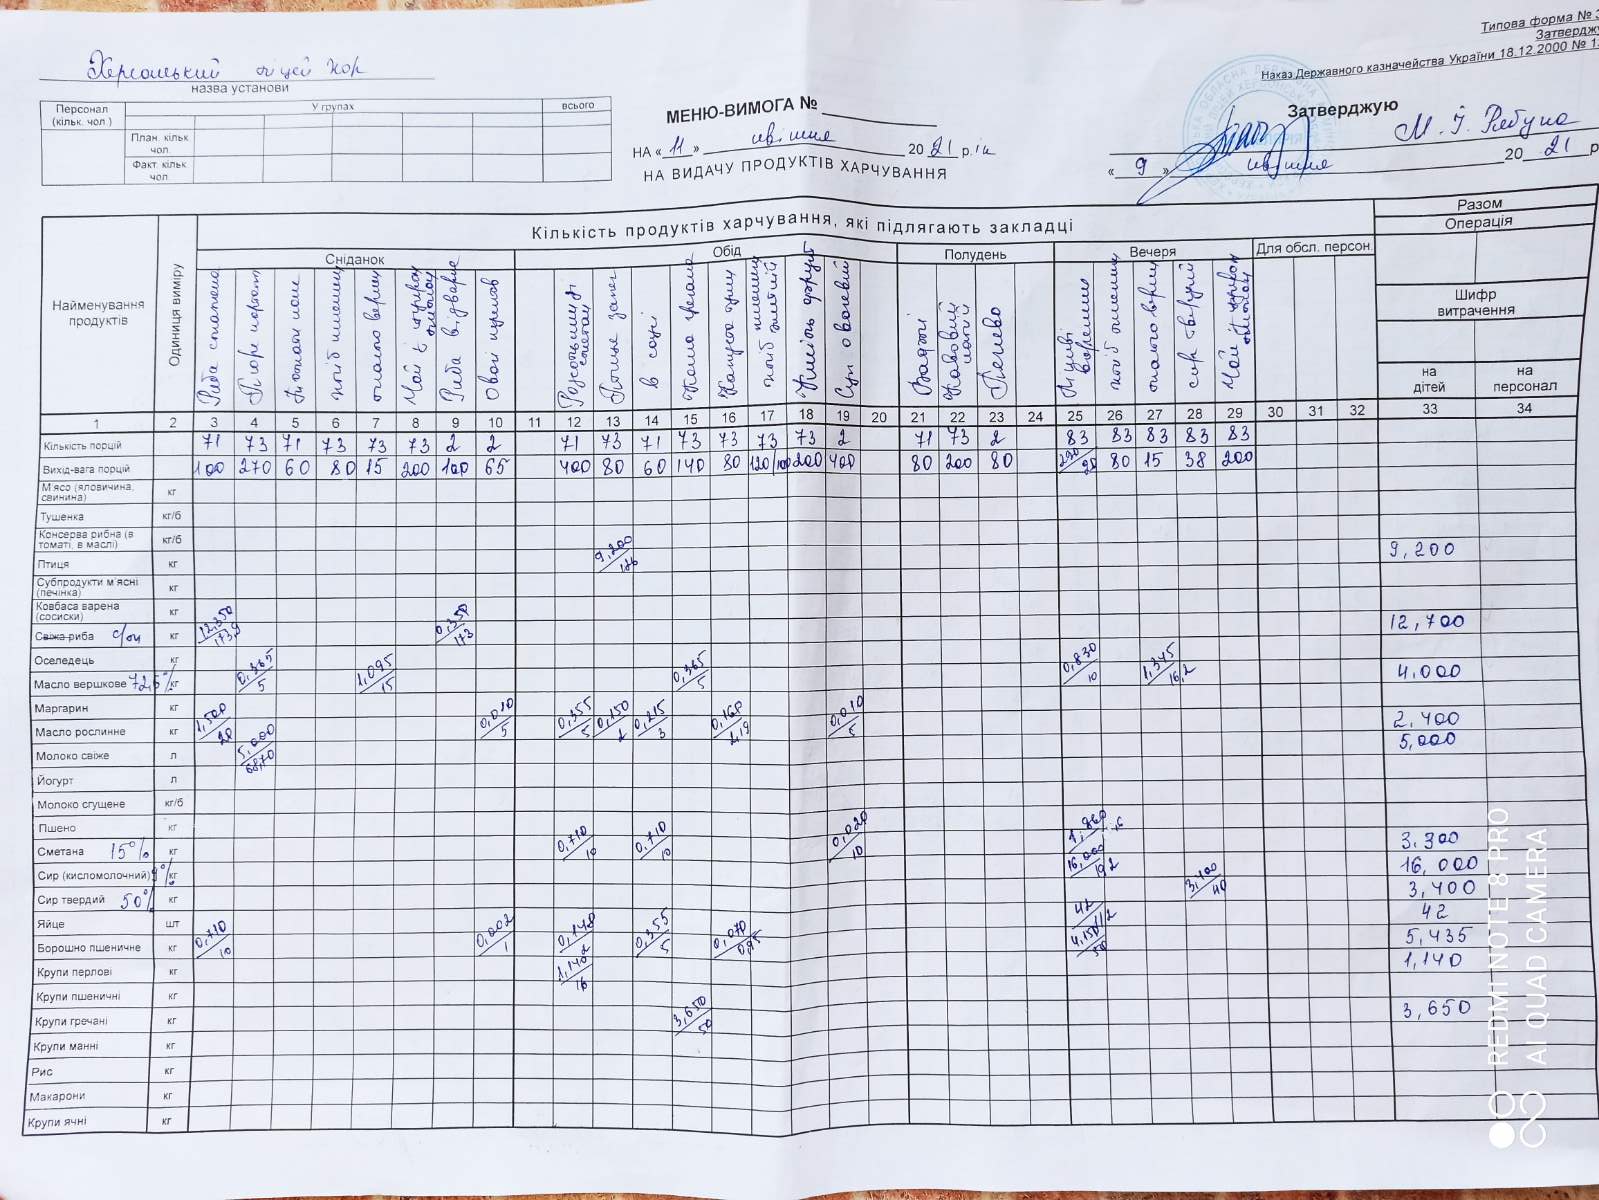 Типова форма № 3
Затвердж
Наказ Державного казначейства України 18.12.2000 № 1
Херсонський ліцей
назва установи
Персонал (кільк. чол.) У групах всього
План. кільк. чол.
Факт. кільк. чол.
МЕНЮ-ВИМОГА №
НА « 11 » квітня 20 21 р.
НА ВИДАЧУ ПРОДУКТІВ ХАРЧУВАННЯ
Затверджую
М. І. Рябуха
« 9 » 20 21 р
Найменування продуктів
Одиниця виміру
Кількість продуктів харчування, які підлягають закладці
Разом
Операція
Сніданок Обід Полудень Вечеря Для обсл. персон.
Шифр витрачення
на дітей на персонал
Риба Пюре хліб масло верш Чай з цукром Риба відварна
Птиця запеч в соусі Каша гречана Капуста туш Суп овочевий
Вафлі Печиво
хліб пшенич масло верш сир твердий Чай з цукром
1 2 3 4 5 6 7 8 9 10 11 12 13 14 15 16 17 18 19 20 21 22 23 24 25 26 27 28 29 30 31 32 33 34
Кількість порцій 71 73 71 73 73 73 2 2 71 73 71 73 73 73 73 2 71 73 2 83 83 83 83 83
Вихід-вага порцій 100 270 60 80 15 200 100 65 400 80 60 140 80 120/100 200 400 80 200 80 80 15 38 200
М'ясо (яловичина, свинина) кг
Тушенка кг/б
Консерва рибна (в томаті, в маслі) кг/б
Птиця кг 9,200 9,200
Субпродукти м'ясні (печінка) кг
Ковбаса варена (сосиски) кг
Свіжа риба с/м кг 12,350 0,350 12,700
Оселедець кг
Масло вершкове 72,5% кг 0,365/5 1,095/15 0,365/5 0,830/10 1,345/16,2 4,000
Маргарин кг
Масло рослинне кг 1,500/20 0,010/5 0,355/5 0,150/2 0,215/3 0,160 0,010/5 2,400
Молоко свіже л 5,000 5,000
Йогурт л
Молоко сгущене кг/б
Пшено кг
Сметана 15% кг 0,710/10 0,710/10 0,020/10 3,300
Сир (кисломолочний) 9% кг 16,000/192 16,000
Сир твердий 50% кг 3,400/40 3,400
Яйце шт 42 42
Борошно пшеничне кг 0,710/10 0,002/1 0,148/2 0,355/5 0,070 4,150/50 5,435
Крупи перлові кг 1,140/16 1,140
Крупи пшеничні кг
Крупи гречані кг 3,650/50 3,650
Крупи манні кг
Рис кг
Макарони кг
Крупи ячні кг
REDMI NOTE 8 PRO
AI QUAD CAMERA